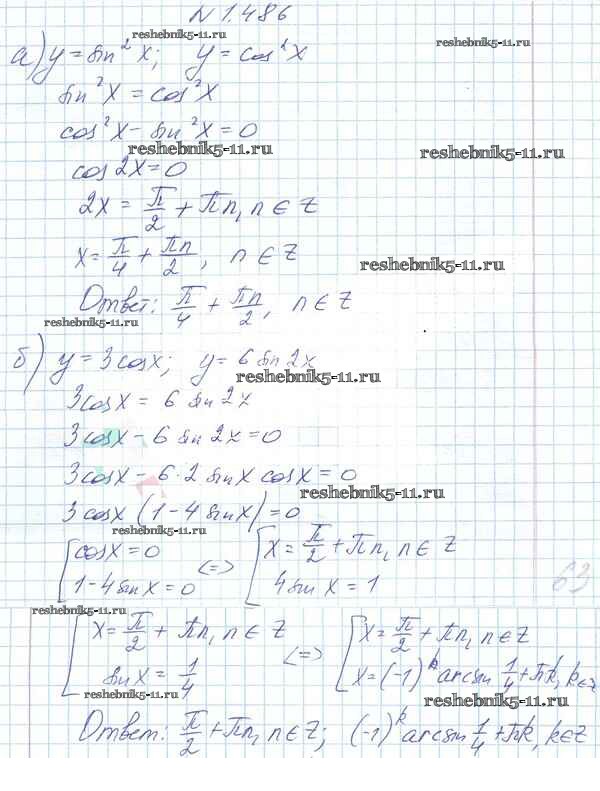 N 1.486
reshebnik5-11.ru
reshebnik5-11.ru
а) y = sin²x; y = cos²x
sin²x = cos²x
cos²x - sin²x = 0
reshebnik5-11.ru
reshebnik5-11.ru
cos 2x = 0
2x = π/2 + πn, n ∈ Z
x = π/4 + πn/2, n ∈ Z
reshebnik5-11.ru
Ответ: π/4 + πn/2, n ∈ Z
reshebnik5-11.ru
б) y = 3cosx; y = 6 sin 2x
reshebnik5-11.ru
3cosx = 6 sin 2x
3cosx - 6 sin 2x = 0
3cosx - 6·2 sinx cosx = 0
reshebnik5-11.ru
3cosx (1-4 sinx) = 0
reshebnik5-11.ru
[cosx = 0 <=> [x = π/2 + πn, n ∈ Z
1-4sinx = 0 4sinx = 1
63
reshebnik5-11.ru
[x = π/2 + πn, n ∈ Z <=> [x = π/2 + πn, n ∈ Z
sinx = 1/4 x = (-1)^k arcsin 1/4 + πk, k ∈ Z
reshebnik5-11.ru
reshebnik5-11.ru
Ответ: π/2 + πn, n ∈ Z; (-1)^k arcsin 1/4 + πk, k ∈ Z